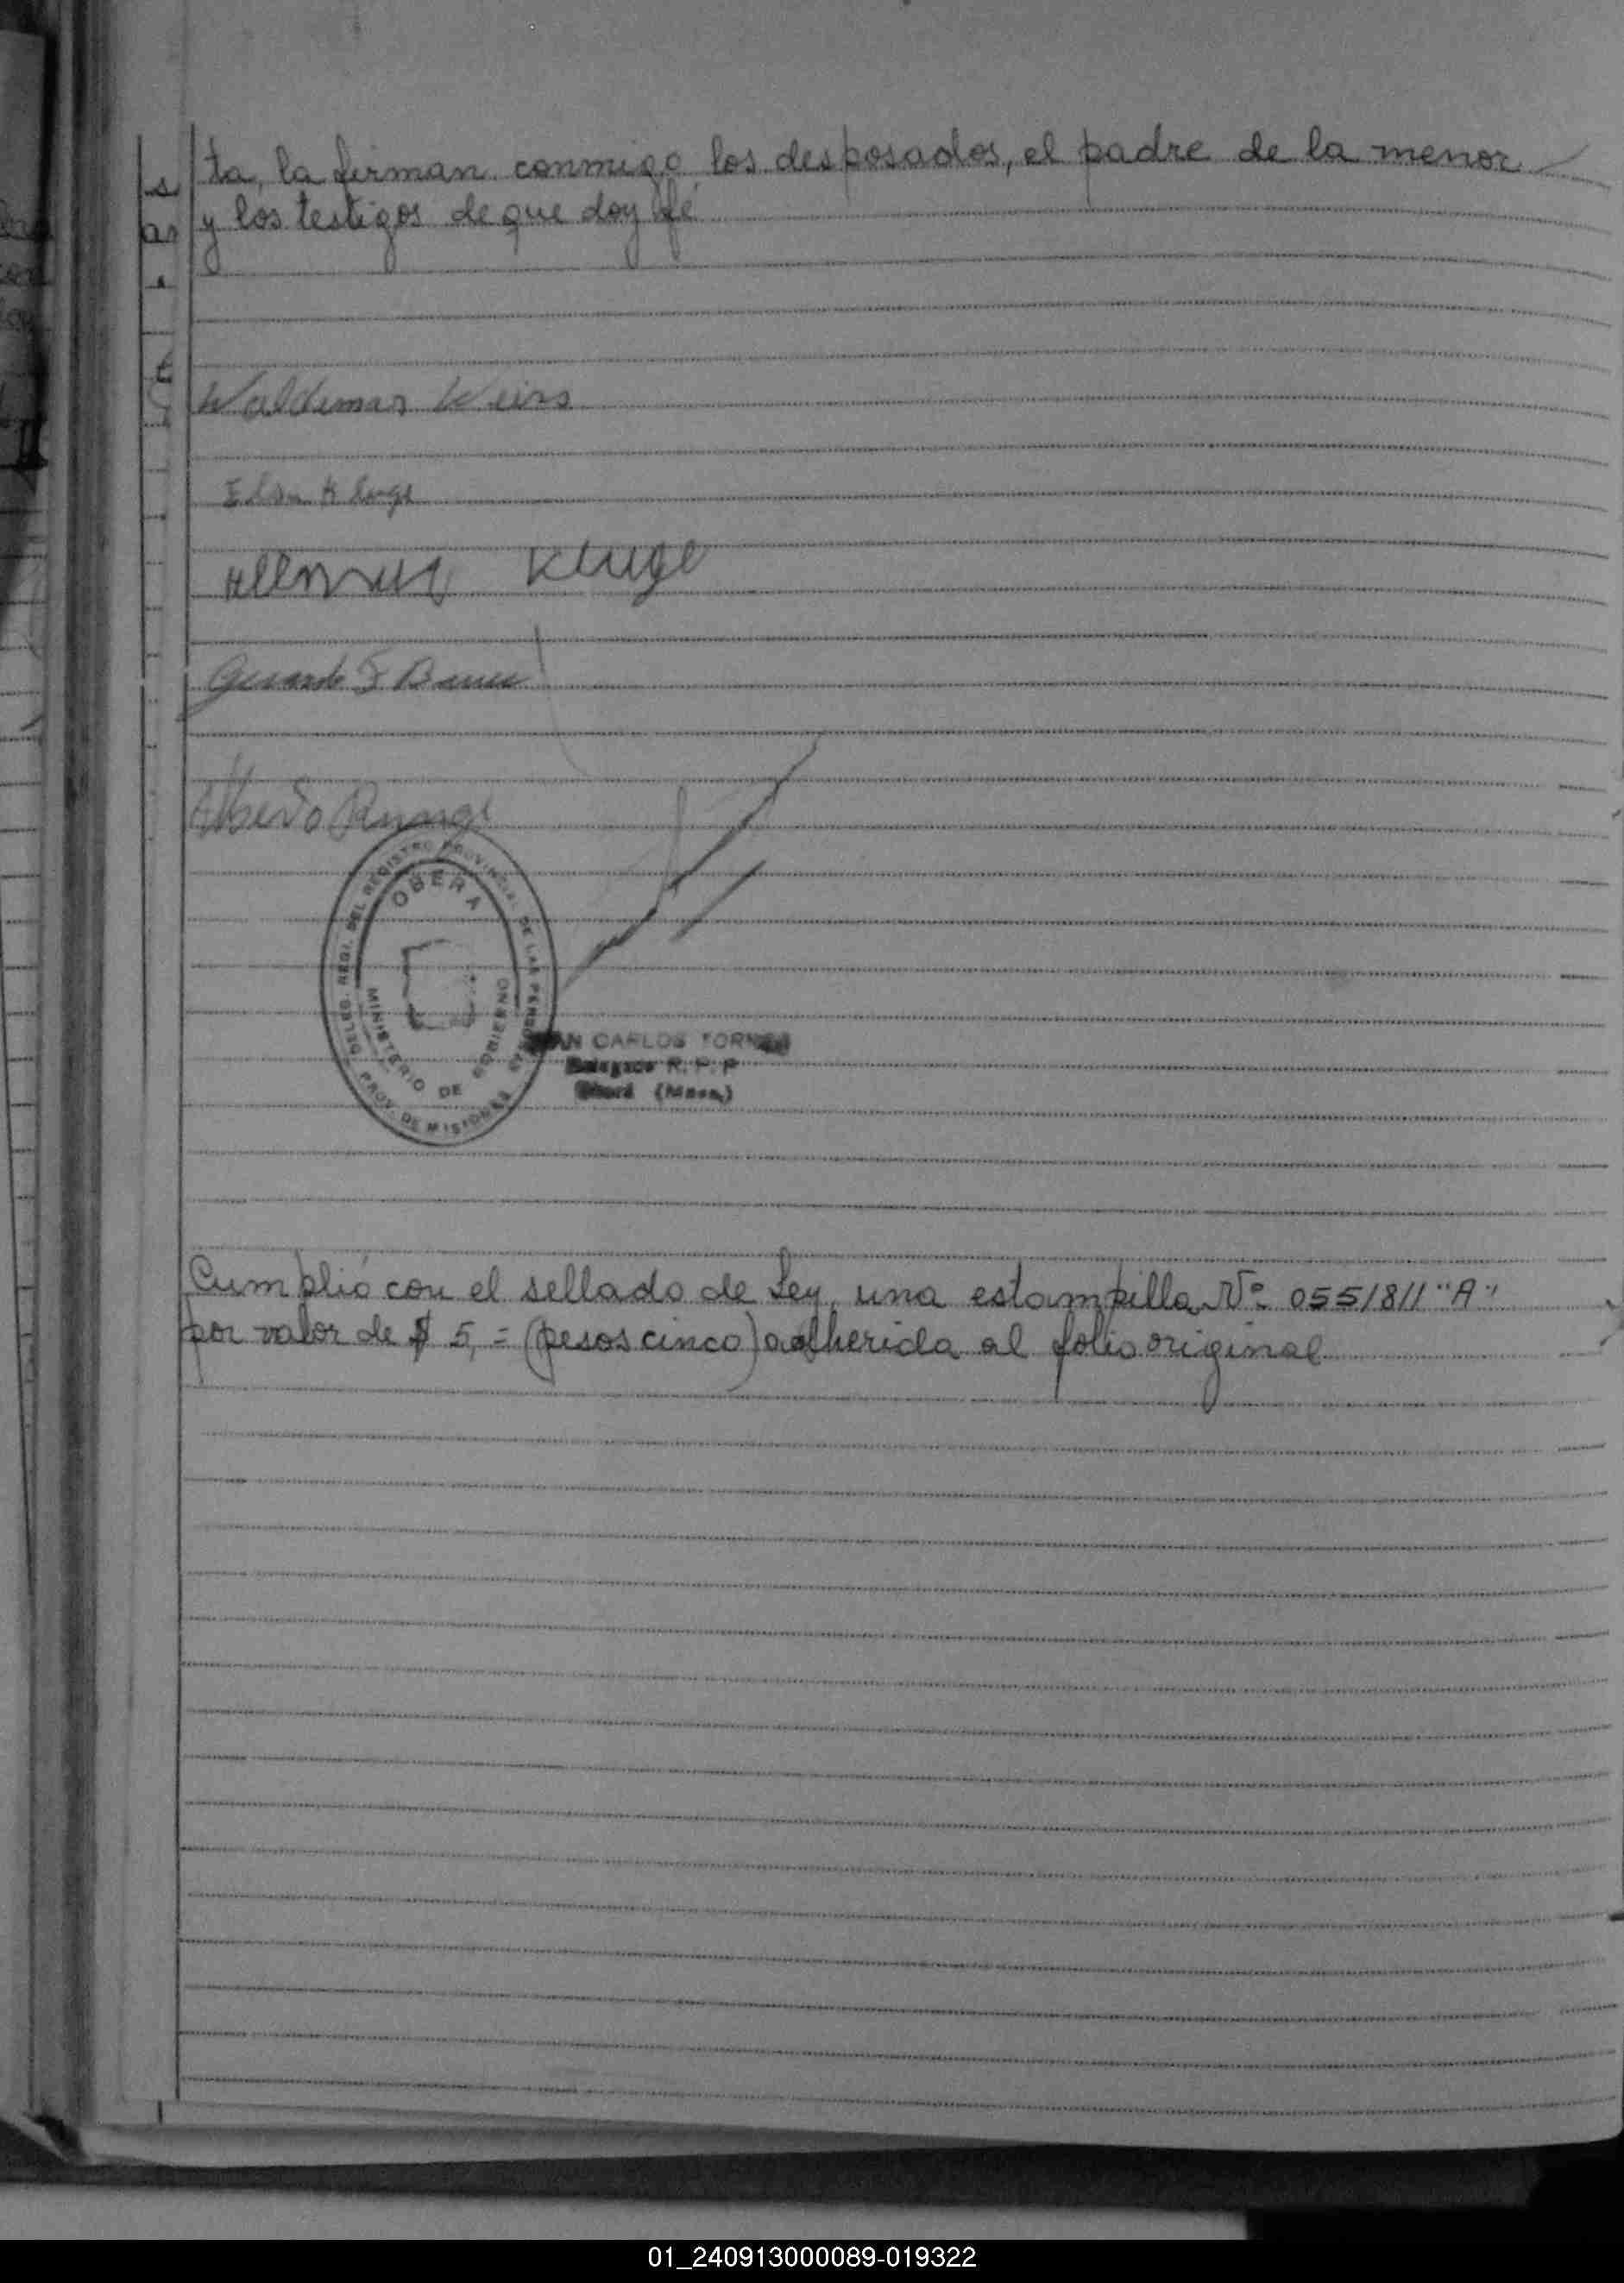 ta, la firman conmigo los desposados, el padre de la menor
y los testigos de que doy fé
Waldemar Weiss
Elsa Kluge
Kluge
Gerardo F
Alberto Runge
DELEG. REGI. DEL REGISTRO PROVINCIAL DE LAS PERSONAS
OBERA
MINISTERIO DE GOBIERNO
PROV. DE MISIONES
CARLOS TORRES
Delegado R. P. P
Oberá (Mnes.)
Cumplió con el sellado de Ley, una estampilla Nº 0551811 "A"
por valor de $ 5,= (pesos cinco) adherida al folio original
01_240913000089-019322